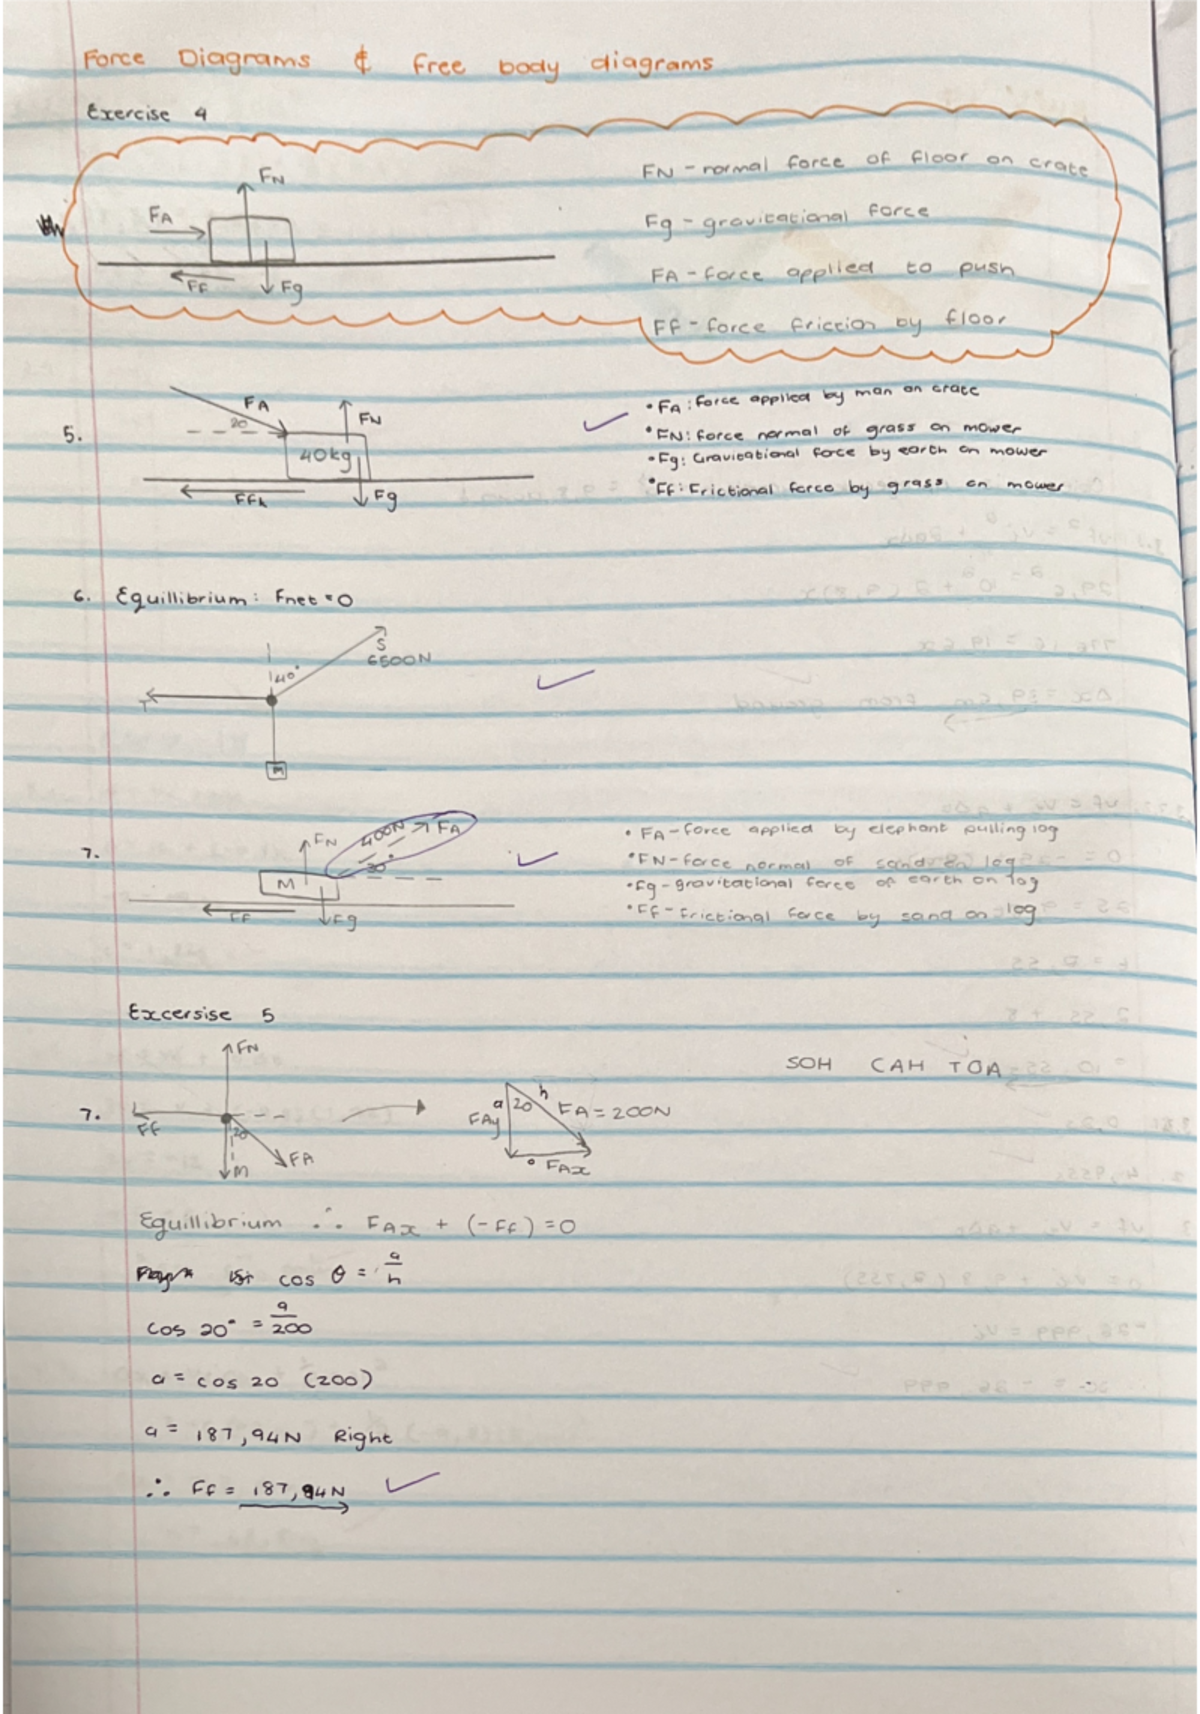 Force Diagrams & free body diagrams
Exercise 4
FN
FA
Ff
Fg
FN - normal force of floor on crate
Fg - gravitational force
FA - force applied to push
Ff - force friction by floor
5.
FA
20
FN
40kg
Ffk
Fg
• FA: Force applied by man on crate
• FN: force normal of grass on mower
• Fg: Gravitational force by earth on mower
• Ff: Frictional force by grass on mower
6. Equillibrium: Fnet = 0
S
40°
6500N
T
M
7.
FN
400N
FA
30°
M
Ff
Fg
• FA - force applied by elephant pulling log
• FN - force normal of sand on log
• Fg - gravitational force of earth on log
• Ff - frictional force by sand on log
Excersise 5
SOH CAH TOA
7.
FN
Ff
20
FA
M
a
20
h
FAy
FA = 200N
o
FAx
Equillibrium ∴ FAx + (-Ff) = 0
cos θ = a/h
cos 20° = a/200
a = cos 20 (200)
a = 187,94N Right
∴ Ff = 187,94N